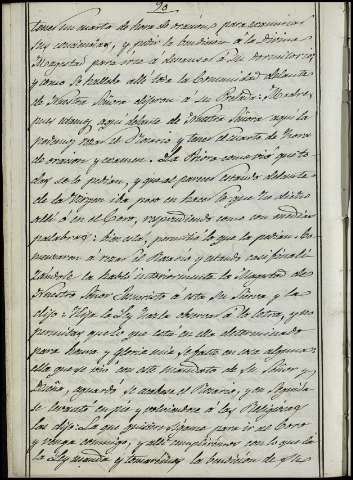 90
tener un cuarto de hora de oracion, para examinar
sus conciencias, y pedir la bendicion á la divina
Magestad para irse a descansar á su dormitorio;
y como se hallaba alli toda la Comunidad delante
de Nuestra Señora dijeron a su Prelada: Madre,
pues estamos aqui delante de Nuestra Señora aqui la
podemos rezar el Rosario y tener el cuarto de hora
de oracion y examen. La Priora como vió que to-
das se lo pedian, y que al parecer estando delante
de la Virgen iba poco en hacer lo que las dichas
alli ó en el Coro, respondiendo como con medias
palabras: bien está, permitió lo que la pedian. Co-
menzaron á rezar el Rosario y estando casi finali-
zandole la habló interiormente la Magestad de
Nuestro Señor Jesucristo á esta su Sierva y la
dijo: Hija la Ley has de observar á la letra, y no
permitas que lo que está en ella determinado
para honra y gloria mia se falte en cosa alguna:
ella que se vió con este mandato de su Señor y
Dueño, aguardó se acabase el Rosario, y en seguida
se levantó en pie y volviendose á las Religiosas
las dijo: La que quisiere sigame para ir al Coro
y venga conmigo, y alli cumpliremos con lo que la
la Ley manda y tomaremos la bendicion de